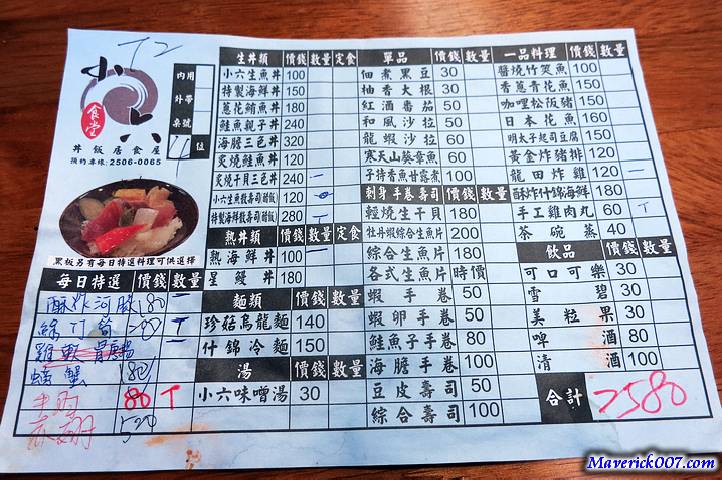 T2
小六
食堂
丼飯居食屋
預約專線:2506-0065
內用
外帶
桌號
位
黑板另有每日特選料理可供選擇
每日特選 價錢 數量
酥炸河豚 180
180
螃蟹 180
80 T
生丼類 價錢 數量 定食
小六生魚丼 100
特製海鮮丼 150
蔥花鮪魚丼 180
鮭魚親子丼 240
海膽三色丼 320
炙燒鮭魚丼 120
炙燒干貝三色丼 240
小六生魚散壽司(醋飯) 120
特製海鮮散壽司(醋飯) 280
熟丼類 價錢 數量 定食
熟海鮮丼 100
星鰻丼 180
麵類 價錢 數量
珍菇烏龍麵 140
什錦冷麵 150
湯 價錢 數量
小六味噌湯 30
單品 價錢 數量
佃煮黑豆 30
柚香大根 30
紅酒番茄 50
和風沙拉 50
龍蝦沙拉 60
寒天山葵章魚 60
子持香魚甘露煮 100
刺身手卷壽司 價錢 數量
輕燒生干貝 180
牡丹蝦綜合生魚片 200
綜合生魚片 180
各式生魚片 時價
蝦手卷 50
蝦卵手卷 50
鮭魚子手卷 80
海膽手卷 100
豆皮壽司 50
綜合壽司 100
一品料理 價錢 數量
醬燒竹筴魚 100
香蔥青花魚 150
咖哩松阪豬 150
日本花魚 160
明太子起司豆腐 150
黃金炸豬排 120
龍田炸雞 120
酥炸什錦海鮮 180
手工雞肉丸 60 T
茶碗蒸 40
飲品 價錢 數量
可口可樂 30
雪碧 30
美粒果 30
啤酒 80
清酒 100
合計 2580
Maverick007.com